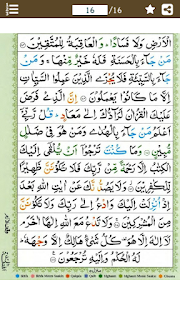 16 /16
الْاَرْضِ وَلَا فَسَادًا ۚ وَالْعَاقِبَةُ لِلْمُتَّقِيْنَ
مَنْ جَآءَ بِالْحَسَنَةِ فَلَهٗ خَيْرٌ مِّنْهَا ۚ وَمَنْ
جَآءَ بِالسَّيِّئَةِ فَلَا يُجْزَى الَّذِيْنَ عَمِلُوا السَّيِّاٰتِ
اِلَّا مَا كَانُوْا يَعْمَلُوْنَ اِنَّ الَّذِيْ فَرَضَ
عَلَيْكَ الْقُرْاٰنَ لَرَآدُّكَ اِلٰى مَعَادٍ ۚ قُلْ رَّبِّيْٓ
اَعْلَمُ مَنْ جَآءَ بِالْهُدٰى وَمَنْ هُوَ فِيْ ضَلٰلٍ
مُّبِيْنٍ وَمَا كُنْتَ تَرْجُوْٓا اَنْ يُّلْقٰٓى اِلَيْكَ
الْكِتٰبُ اِلَّا رَحْمَةً مِّنْ رَّبِّكَ فَلَا تَكُوْنَنَّ ظَهِيْرًا
لِّلْكٰفِرِيْنَ وَلَا يَصُدُّنَّكَ عَنْ اٰيٰتِ اللّٰهِ بَعْدَ
اِذْ اُنْزِلَتْ اِلَيْكَ وَادْعُ اِلٰى رَبِّكَ وَلَا تَكُوْنَنَّ
مِنَ الْمُشْرِكِيْنَ وَلَا تَدْعُ مَعَ اللّٰهِ اِلٰهًا اٰخَرَ
لَآ اِلٰهَ اِلَّا هُوَ ۚ كُلُّ شَيْءٍ هَالِكٌ اِلَّا وَجْهَهٗ
لَهُ الْحُكْمُ وَاِلَيْهِ تُرْجَعُوْنَ